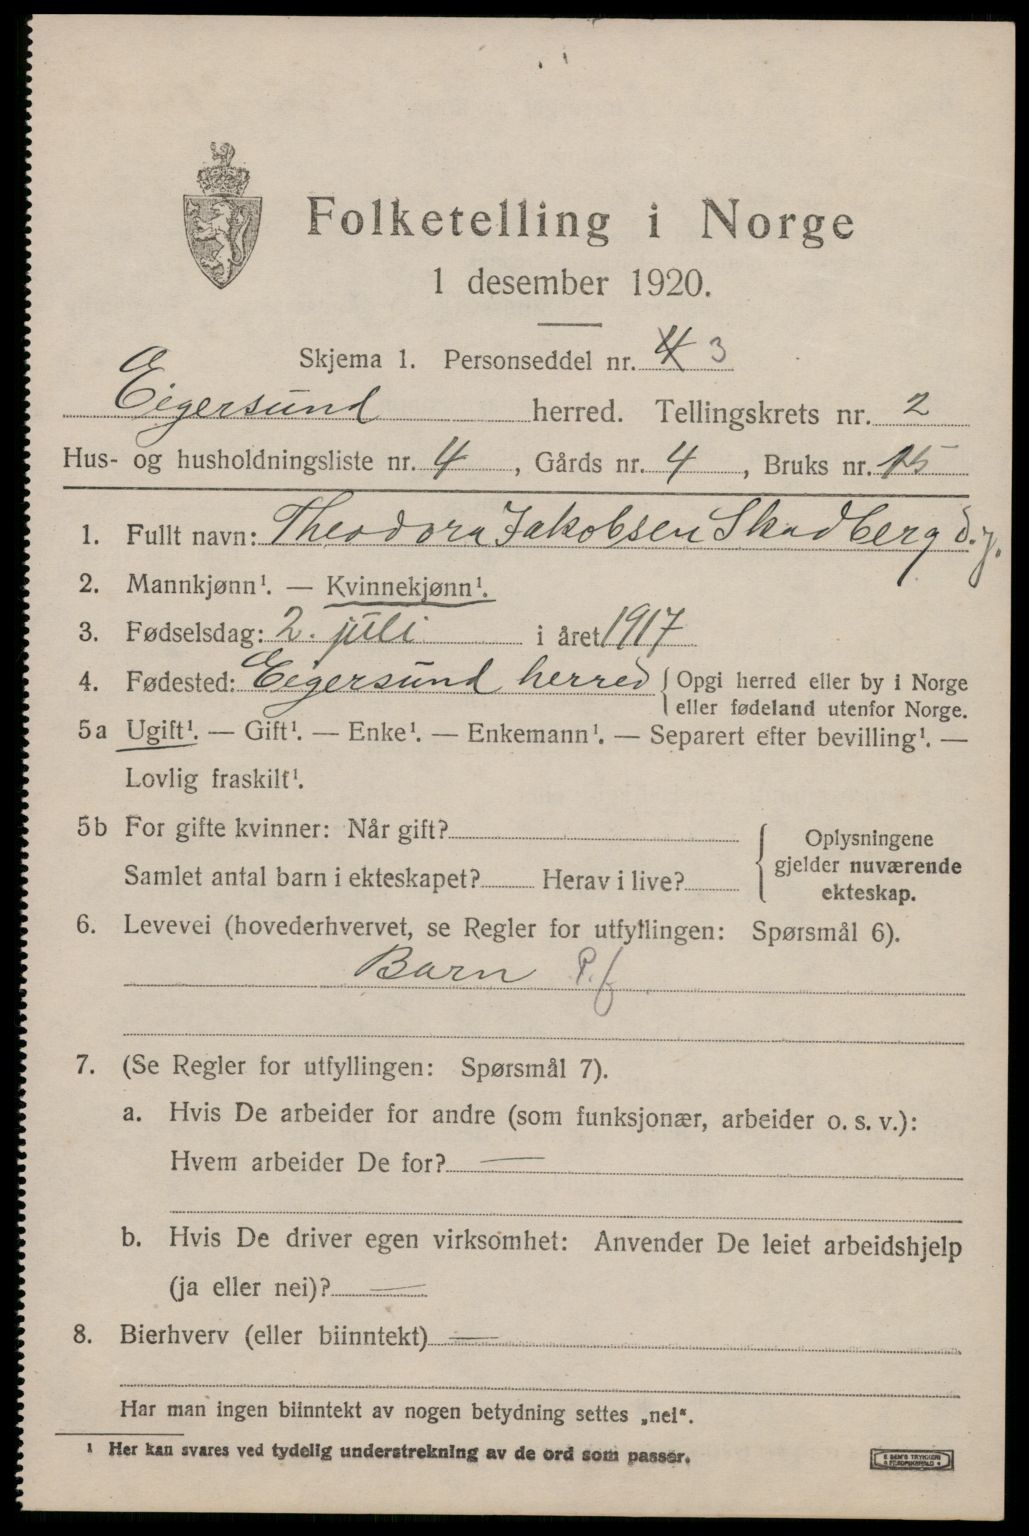 Folketelling i Norge
1 desember 1920.
Skjema 1. Personseddel nr. 4 3
Eigersund herred. Tellingskrets nr. 2
Hus- og husholdningsliste nr. 4, Gårds nr. 4, Bruks nr. 15
1. Fullt navn: Theodora Jakobsen Skadberg d.y.
2. Mannkjønn¹. — Kvinnekjønn¹.
3. Fødselsdag: 2. juli i året 1917
4. Fødested: Eigersund herred { Opgi herred eller by i Norge
eller fødeland utenfor Norge.
5a Ugift¹. — Gift¹. — Enke¹. — Enkemann¹. — Separert efter bevilling¹. —
Lovlig fraskilt¹.
5b For gifte kvinner: Når gift?
Samlet antal barn i ekteskapet? Herav i live?
{ Oplysningene
gjelder nuværende
ekteskap.
6. Levevei (hovederhvervet, se Regler for utfyllingen: Spørsmål 6).
Barn P.f
7. (Se Regler for utfyllingen: Spørsmål 7).
a. Hvis De arbeider for andre (som funksjonær, arbeider o. s. v.):
Hvem arbeider De for? —
b. Hvis De driver egen virksomhet: Anvender De leiet arbeidshjelp
(ja eller nei)? —
8. Bierhverv (eller biinntekt) —
Har man ingen biinntekt av nogen betydning settes „nei“.
¹ Her kan svares ved tydelig understrekning av de ord som passer.